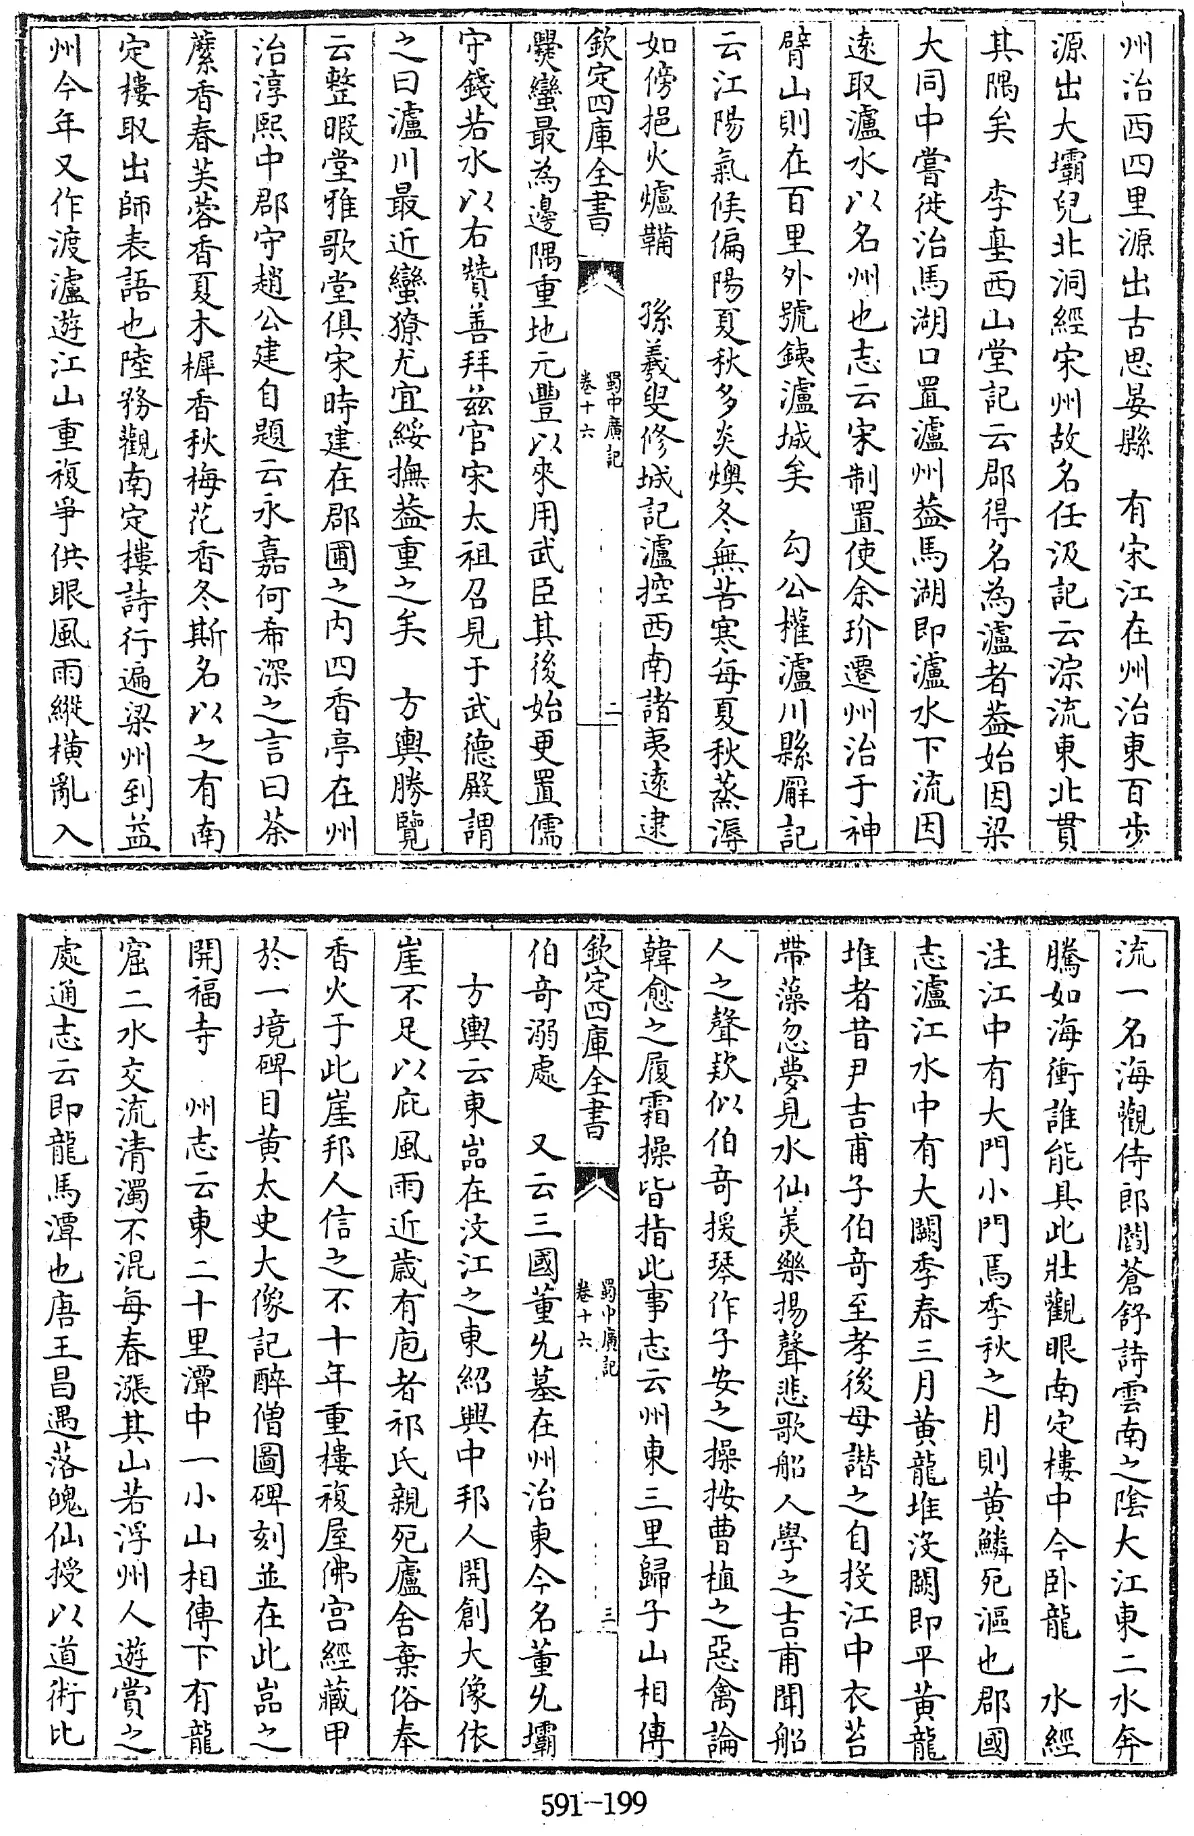 州治西四里源出古思晏縣　有宋江在州治東百步
源出大壩兒北洞經宋州故名任汲記云淙流東北貫
其隅矣　李𡌴西山堂記云郡得名為瀘者葢始因梁
大同中嘗徙治馬湖口置瀘州葢馬湖即瀘水下流因
遠取瀘水以名州也志云宋制置使余玠遷州治于神
臂山則在百里外號鐵瀘城矣　勾公權瀘川縣廨記
云江陽氣候偏陽夏秋多炎燠冬無苦寒每夏秋蒸溽
如傍挹火爐鞴　孫羲叟修城記瀘控西南諸夷遠逮
欽定四庫全書
蜀中廣記
卷十六
二
爨蠻最為邊隅重地元豐以來用武臣其後始更置儒
守錢若水以右贊善拜兹官宋太祖召見于武德殿謂
之曰瀘川最近蠻獠尤宜綏撫葢重之矣　方輿勝覽
云整暇堂雅歌堂俱宋時建在郡圃之内四香亭在州
治淳熙中郡守趙公建自題云永嘉何希深之言曰荼
蘪香春芙蓉香夏木樨香秋梅花香冬斯名以之有南
定樓取出師表語也陸務觀南定樓詩行遍梁州到益
州今年又作渡瀘遊江山重複爭供眼風雨縱橫亂入
流一名海觀侍郎閻蒼舒詩雲南之隂大江東二水奔
騰如海衝誰能具此壯觀眼南定樓中今卧龍　水經
注江中有大門小門焉季秋之月則黄鱗死漚也郡國
志瀘江水中有大闕季春三月黄龍堆没闕即平黄龍
堆者昔尹吉甫子伯奇至孝後母譖之自投江中衣苔
帶藻忽夢見水仙羙樂揚聲悲歌船人學之吉甫聞船
人之聲欵似伯奇援琴作子安之操按曹植之惡禽論
韓愈之履霜操皆指此事志云州東三里歸子山相傳
欽定四庫全書
蜀中廣記
卷十六
三
伯奇溺處　又云三國董允墓在州治東今名董允壩
方輿云東嵓在汶江之東紹興中邦人開創大像依
崖不足以庇風雨近歳有庖者祁氏親死廬舍棄俗奉
香火于此崖邦人信之不十年重樓複屋佛宫經藏甲
於一境碑目黄太史大像記醉僧圖碑刻並在此嵓之
開福寺　州志云東二十里潭中一小山相傳下有龍
窟二水交流清濁不混每春漲其山若浮州人遊賞之
處通志云即龍馬潭也唐王昌遇落魄仙授以道術比
591-199